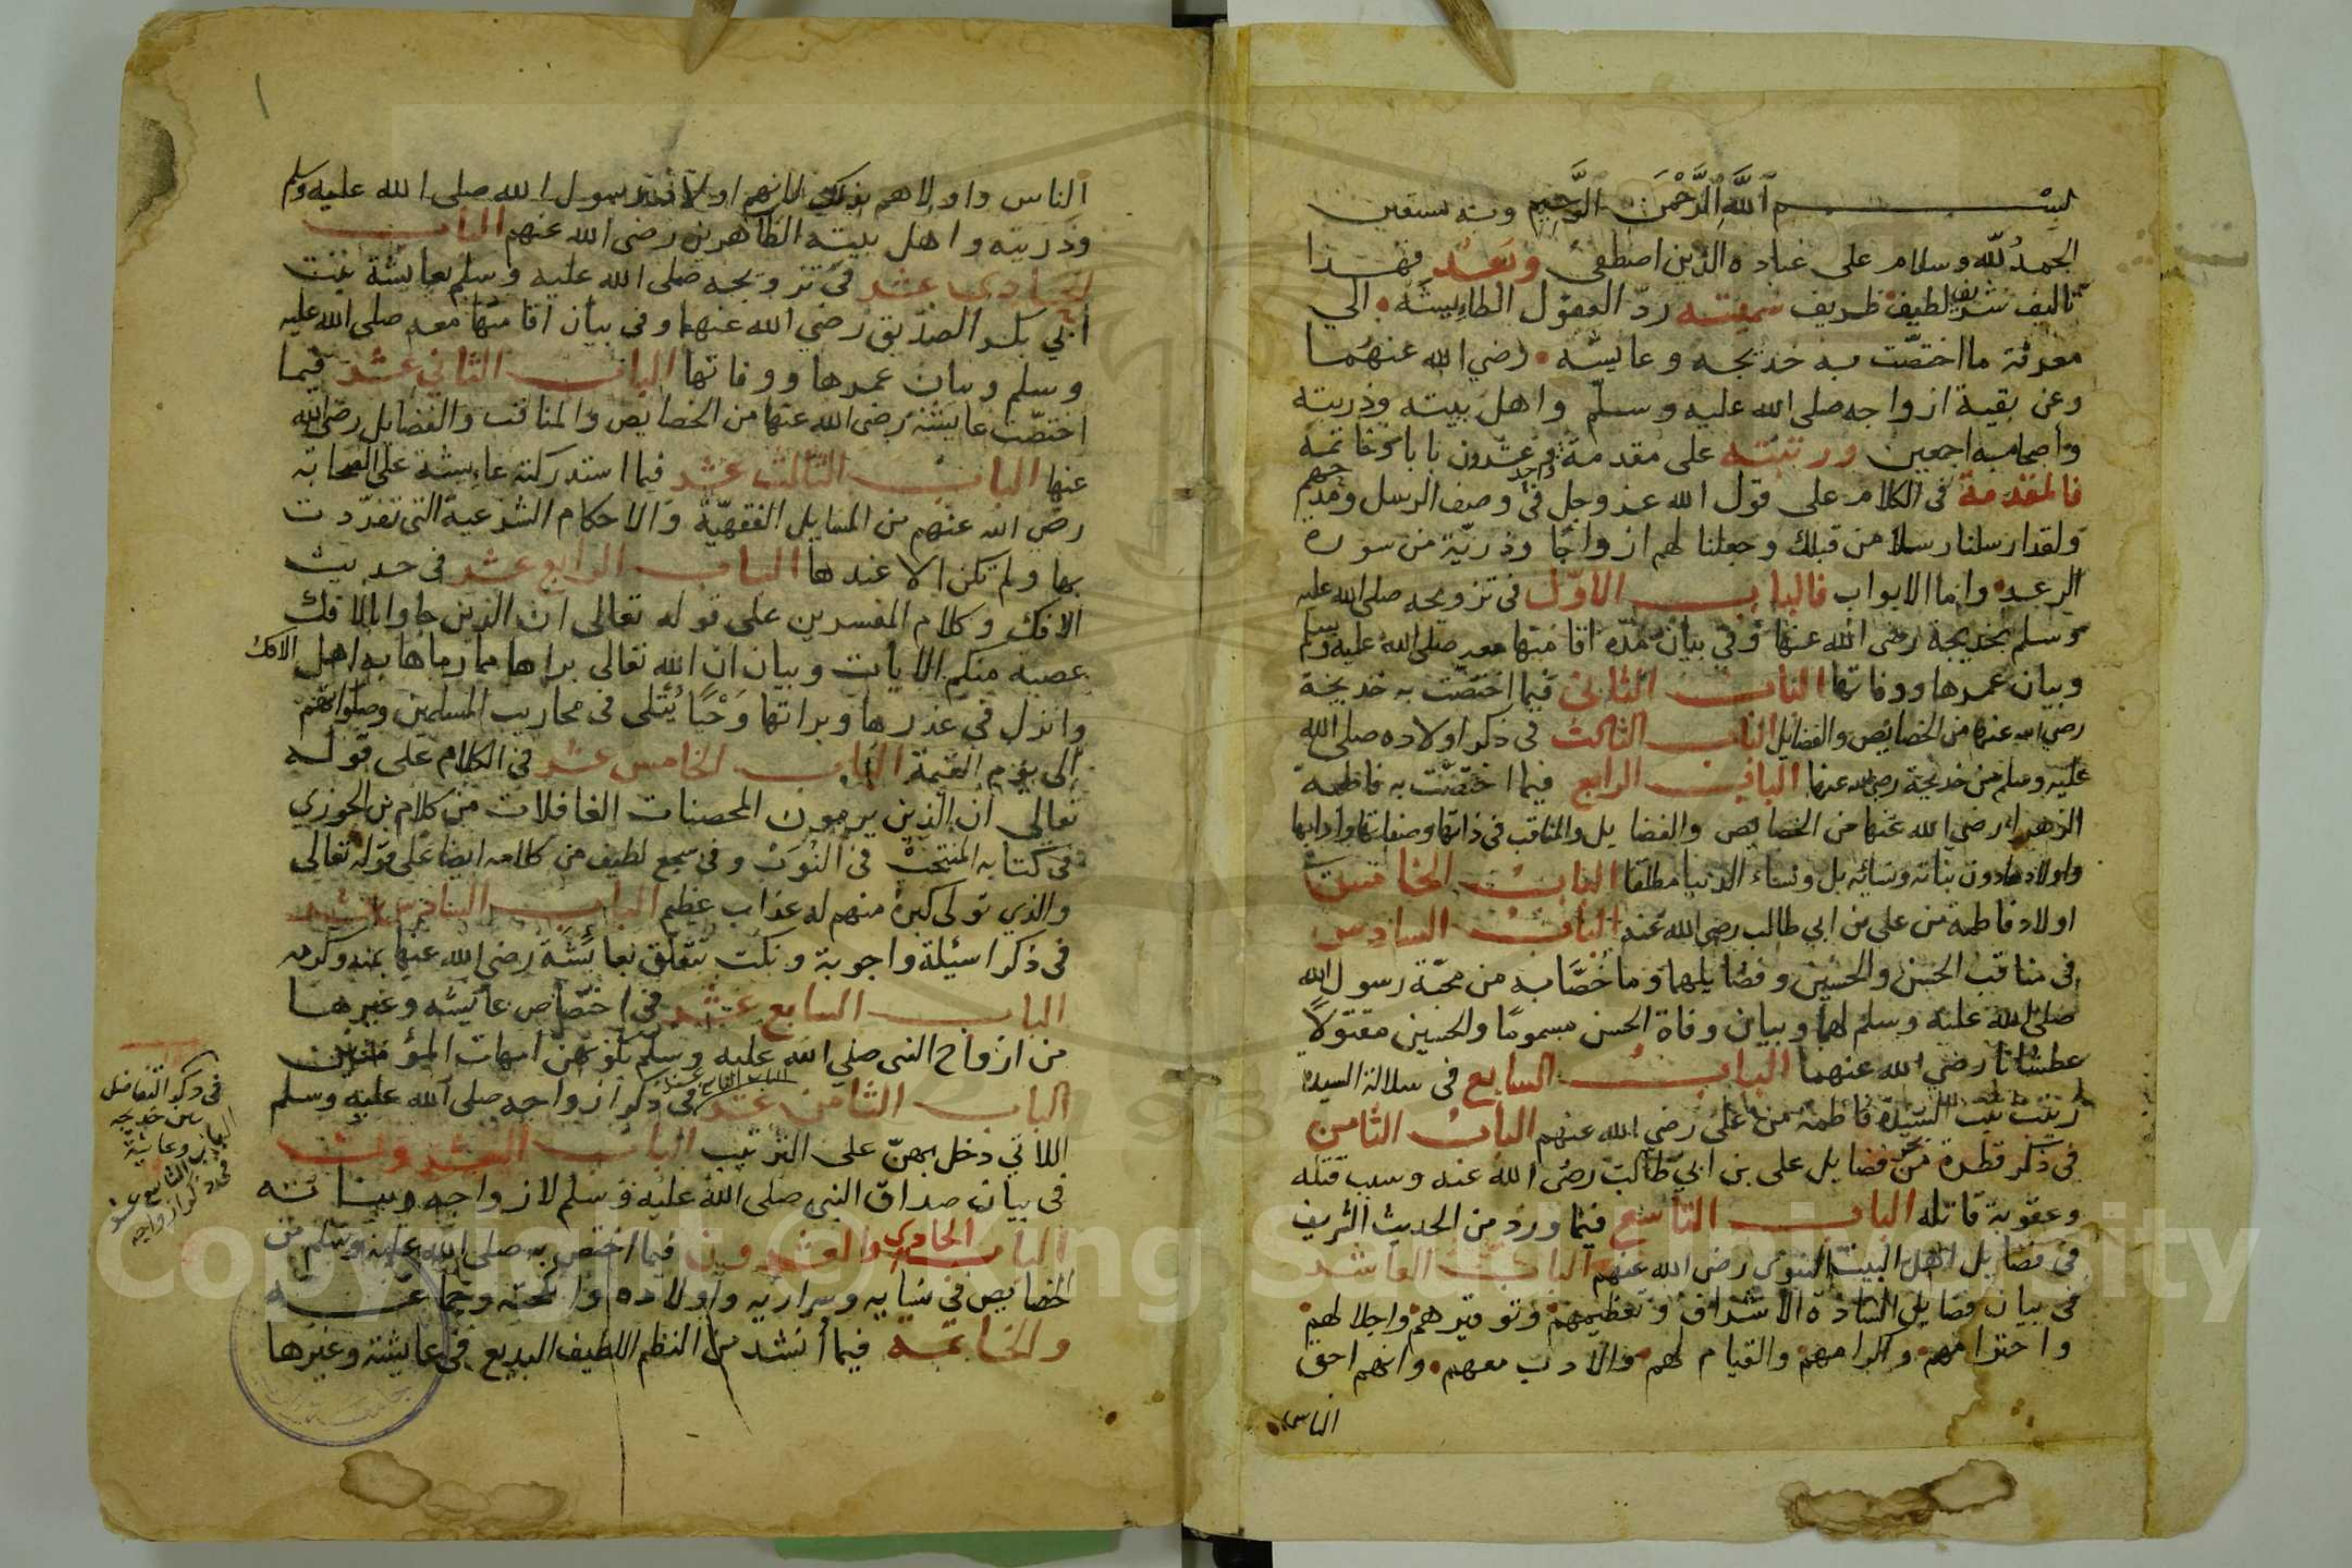 بسم الله الرحمن الرحيم وبه نستعين
الحمد لله وسلام على عباده الذين اصطفى وبعد فهذا
تاليف شريف لطيف ظريف سميته رد العقول الطايشه الي
معرفة ما اختصت به خديجه وعايشه رضي الله عنهما
وعن بقية ازواجه صلى الله عليه وسلم واهل بيته وذريته
واصحابه اجمعين ورتبته على مقدمة وواحد وعشرون بابا وخاتمة
فالمقدمة في الكلام على قول الله عز وجل في وصف الرسل ومدحهم
ولقد ارسلنا رسلا من قبلك وجعلنا لهم ازواجا وذرية من سورة
الرعد واما الابواب فالباب الاول في تزويجه صلى الله عليه
وسلم بخديجة رضى الله عنها وفي بيان مدة اقامتها معه صلى الله عليه وسلم
وبيان عمرها ووفاتها الباب الثاني فيما اختصت به خديجة
رضي الله عنها من الخصايص والفضايل الباب الثالث في ذكر اولاده صلى الله
عليه وسلم من خديجة رضي الله عنها الباب الرابع فيما اختصت به فاطمة
الزهراء رضي الله عنها من الخصايص والفضايل والمناقب في ذاتها وصفاتها وادابها
واولادها دون بناته ونسائه بل ونساء الدنيا مطلقا الباب الخامس في
اولاد فاطمة من على بن ابي طالب رضي الله عنه الباب السادس
في مناقب الحسن والحسين وفضايلهما وما خصا به من محبة رسول الله
صلى الله عليه وسلم لهما وبيان وفاة الحسن مسموما والحسين مقتولا
عطشانا رضي الله عنهما الباب السابع في سلالة السيدة
زينب بنت السيدة فاطمة من على رضي الله عنهم الباب الثامن
في ذكر قطرة من بحر فضايل على بن ابي طالب رضي الله عنه وسبب قتله
وعقوبة قاتله الباب التاسع فيما ورد من الحديث الشريف
في فضايل اهل البيت النبوي رضي الله عنهم الباب العاشر
في بيان فضايل السادة الاشراف وتعظيمهم وتوقيرهم واجلالهم
واحترامهم واكرامهم والقيام لهم والادب معهم وانهم احق
الناس
الناس واولاهم بذلك لانهم اولاد رسول الله صلى الله عليه وسلم
وذريته واهل بيته الطاهرين رضى الله عنهم الباب
الحادي عشر في تزويجه صلى الله عليه وسلم بعايشة بنت
ابي بكر الصديق رضي الله عنهما وفي بيان اقامتها معه صلى الله عليه
وسلم وبيان عمرها ووفاتها الباب الثاني عشر فيما
اختصت عايشة رضى الله عنها من الخصايص والمناقب والفضايل رضي الله
عنها الباب الثالث عشر فيما استدركته عايشة على الصحابة
رضي الله عنهم من المسايل الفقهية والاحكام الشرعية التى تفردت
بها ولم تكن الا عندها الباب الرابع عشر في حديث
الافك وكلام المفسرين على قوله تعالى ان الذين جاوا بالافك
عصبة منكم الايات وبيان ان الله تعالى براها مما رماها به اهل الافك
وانزل في عذرها وبراتها وحيا يتلى في محاريب المسلمين وصلواتهم
الى يوم القيمة الباب الخامس عشر في الكلام على قوله
تعالى ان الذين يرمون المحصنات الغافلات من كلام بن الجوزي
في كتابه المنتخب في النوب وفي سجع لطيف من كلامه ايضا على قوله تعالى
والذي تولى كبره منهم له عذاب عظيم الباب السادس عشر
في ذكر اسيلة واجوبة ونكت تتعلق بعايشة رضي الله عنها بمنه وكرمه
الباب السابع عشر في اختصاص عايشه وغيرها
من ازواج النبى صلى الله عليه وسلم بكونهن امهات المؤمنين
الباب الثامن عشر في ذكر ازواجه صلى الله عليه وسلم
اللاتي دخل بهن على الترتيب الباب العشرون
في بيان صداق النبي صلى الله عليه وسلم لازواجه وبناته
الباب الحادي والعشرون فيما اختص به صلى الله عليه وسلم من
الخصايص في نسايه وسراريه واولاده وانكحته وجماعه
والخاتمة فيما أنشد من النظم اللطيف البديع في عايشة وغيرها
في ذكر التفاضل
بين خديجه
وعايشة
التاسع عشر
ذكر ازواجه
Copyright © King Saud University
1957